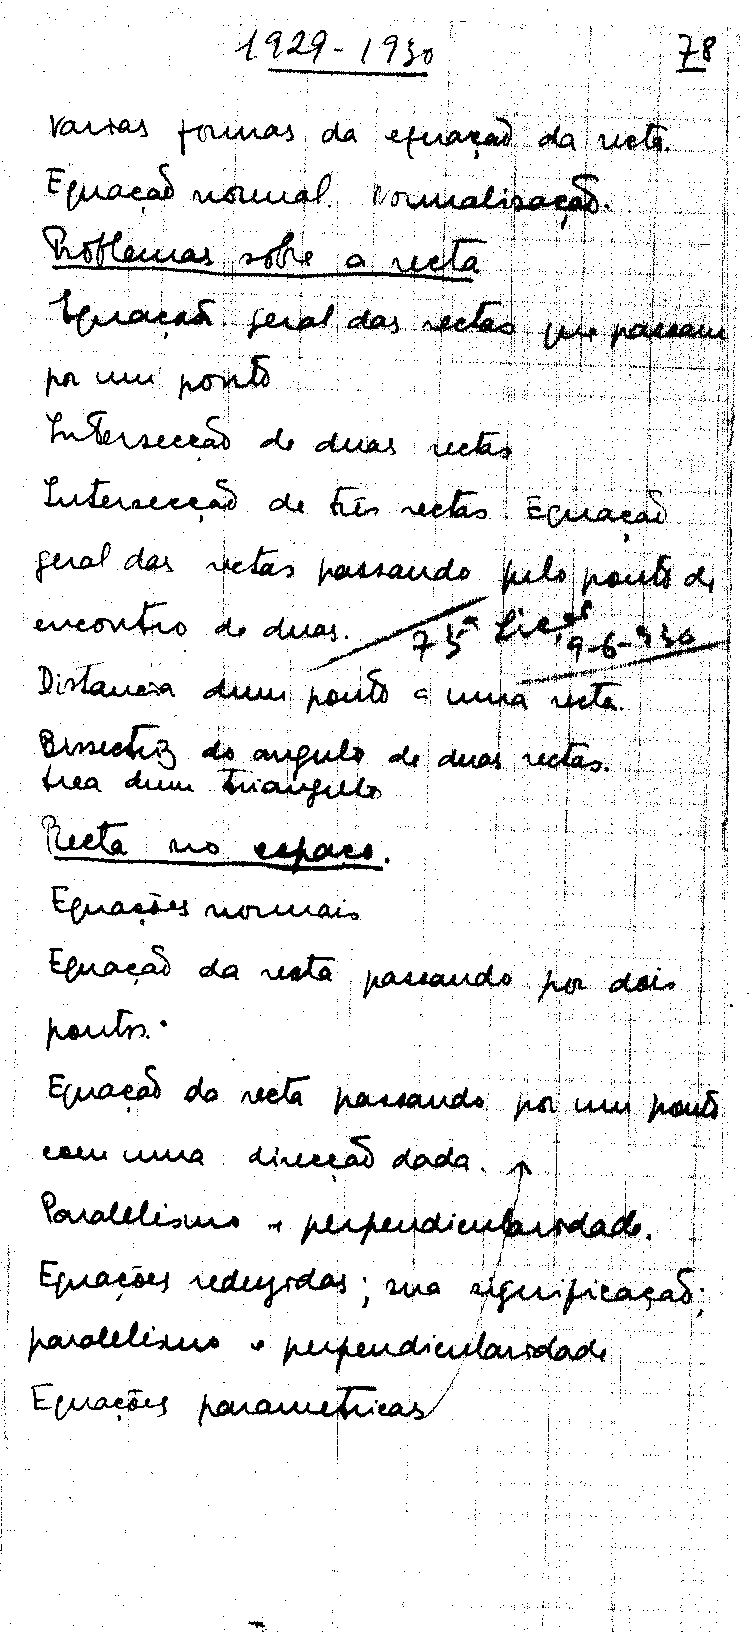 1929-1930 78
Varias formas da equação da recta.
Equação normal. Normalisação.
Problemas sobre a recta
Equação geral das rectas que passam
por um ponto
Intersecção de duas rectas
Intersecção de três rectas. Equação
geral das rectas passando pelo ponto de
encontro de duas. 73ª 9-6-930
Distancia dum ponto a uma recta.
Bissectriz do angulo de duas rectas.
Area dum triangulo
Recta no espaço.
Equações normais
Equação da recta passando por dois
pontos.
Equação da recta passando por um ponto
com uma direcção dada.
Paralelismo e perpendicularidade.
Equações reduzidas; sua significação;
paralelismo e perpendicularidade
Equações parametricas